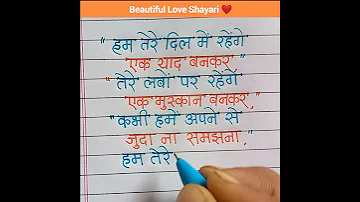 Beautiful Love Shayari ❤️
"हम तेरे दिल में रहेंगे
'एक याद बनकर,"
"तेरे लबों पर रहेंगे
'एक मुस्कान बनकर,"
"कभी हमें अपने से
जुदा ना समझना,"
हम तेरे